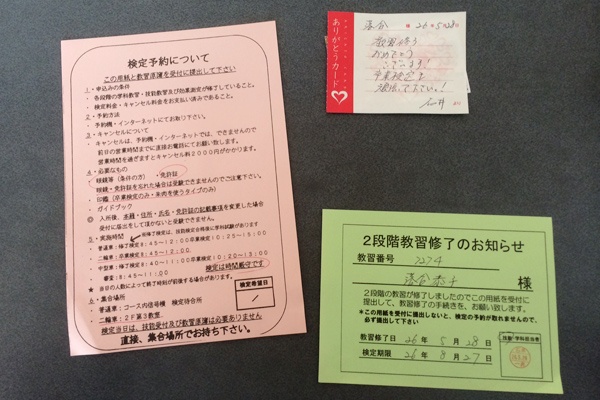 検定予約について
この用紙と教習原簿を受付に提出して下さい
1・申込みの条件
・各段階の学科教習・技能教習及び効果測定が修了していること。
・検定料金・キャンセル料金をお支払済みであること。
2・予約方法
予約機・インターネットにてお取り下さい。
3・キャンセルについて
キャンセルは、予約機・インターネットでは、できませんので
前日の営業時間までに直接お電話にてお願い致します。
営業時間を過ぎますとキャンセル料2000円がかかります。
4・必要なもの
・眼鏡等(条件の方) ・免許証
眼鏡・免許証を忘れた場合は受験できませんのでご注意下さい。
・印鑑(卒業検定のみ・朱肉を使うタイプのみ)
・ガイドブック
◎ 入所後、本籍・住所・氏名・免許証の記載事項を変更した場合
受付に届出をして頂かないと受験できません。
5・実施時間
普通車:修了検定8:45~12:00卒業検定10:25~15:00
二輪車:卒業検定8:45~12:00
中型車:修了検定8:40~11:00卒業検定10:20~13:00
審査:8:45~11:00
検定は時間厳守です
★ 当日の人数によって終了時刻が前後する場合があります。
6・集合場所
・普通車:コース内信号横 検定待合所
・二輪車:2F第3教室
検定希望日
/
検定当日は、技能受付及び教習原簿は必要ありません
直接、集合場所でお持ち下さい。
ありがとうカード
落合 26年5月28日
教習修了
おめでとう
ございます!
卒業検定も
頑張って下さい!
石井
2段階教習修了のお知らせ
教習番号 7274
様
2段階の教習が修了しましたのでこの用紙を受付に
提出して、教習修了の手続きを、お願い致します。
*この用紙を受付に提出しないと、検定の予約が取れませんので、
必ず提出して下さい
教習修了日 26年 5月 28日
検定期限 26年 8月 27日
技能・学科担当者